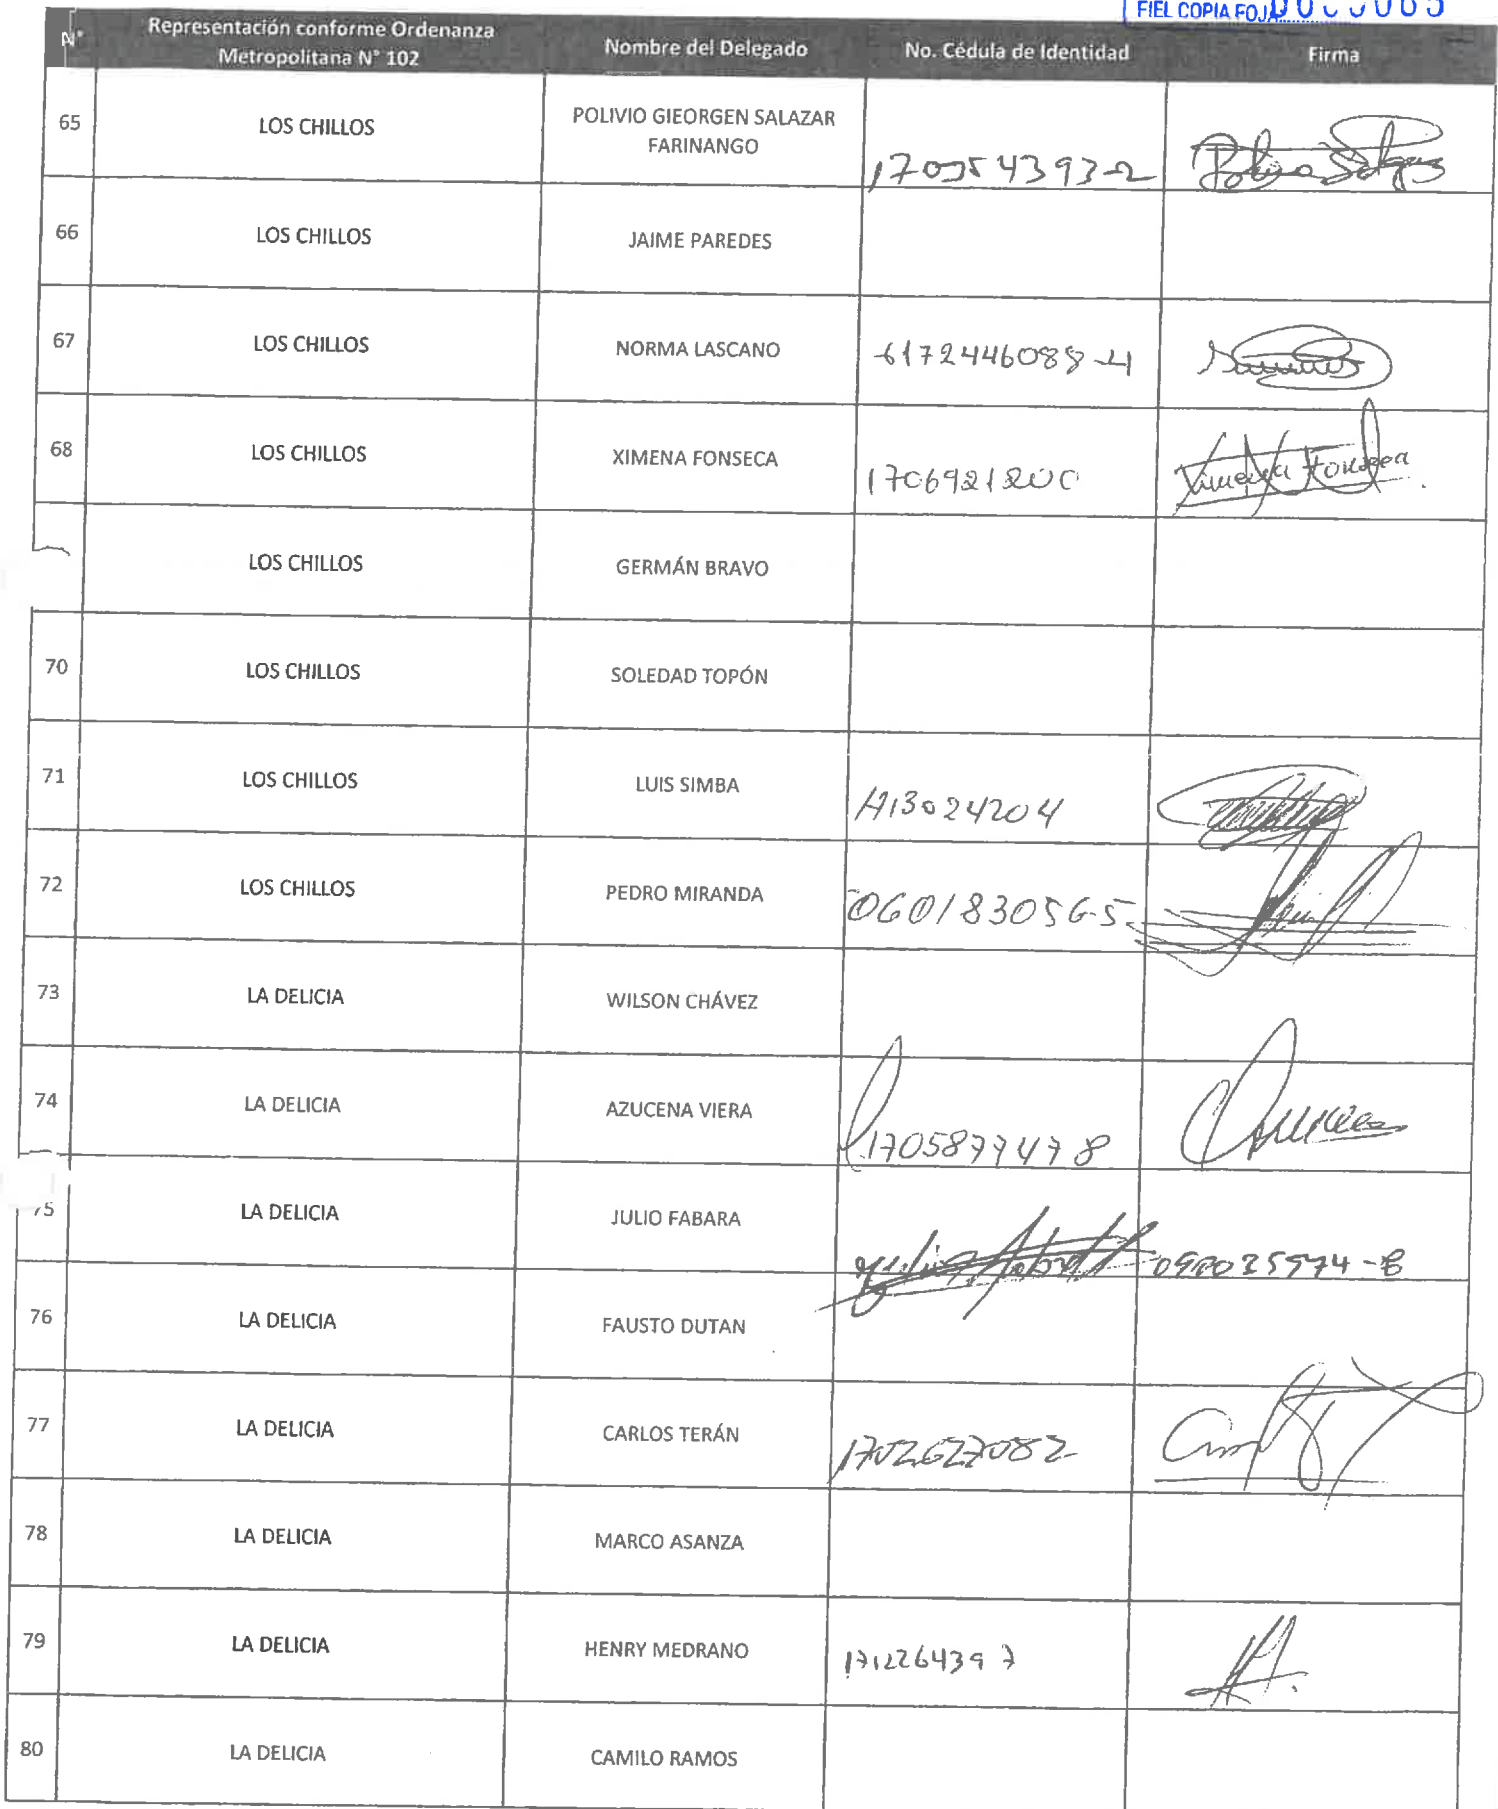 FIEL COPIA FOJA
N° Representación conforme Ordenanza Metropolitana N° 102 Nombre del Delegado No. Cédula de Identidad Firma
65 LOS CHILLOS POLIVIO GIEORGEN SALAZAR FARINANGO
66 LOS CHILLOS JAIME PAREDES
67 LOS CHILLOS NORMA LASCANO
68 LOS CHILLOS XIMENA FONSECA 1706921200 Ximena Fonseca
LOS CHILLOS GERMÁN BRAVO
70 LOS CHILLOS SOLEDAD TOPÓN
71 LOS CHILLOS LUIS SIMBA
72 LOS CHILLOS PEDRO MIRANDA 060183056-5
73 LA DELICIA WILSON CHÁVEZ
74 LA DELICIA AZUCENA VIERA
75 LA DELICIA JULIO FABARA
76 LA DELICIA FAUSTO DUTAN
77 LA DELICIA CARLOS TERÁN 1702627082
78 LA DELICIA MARCO ASANZA
79 LA DELICIA HENRY MEDRANO 1712264397
80 LA DELICIA CAMILO RAMOS